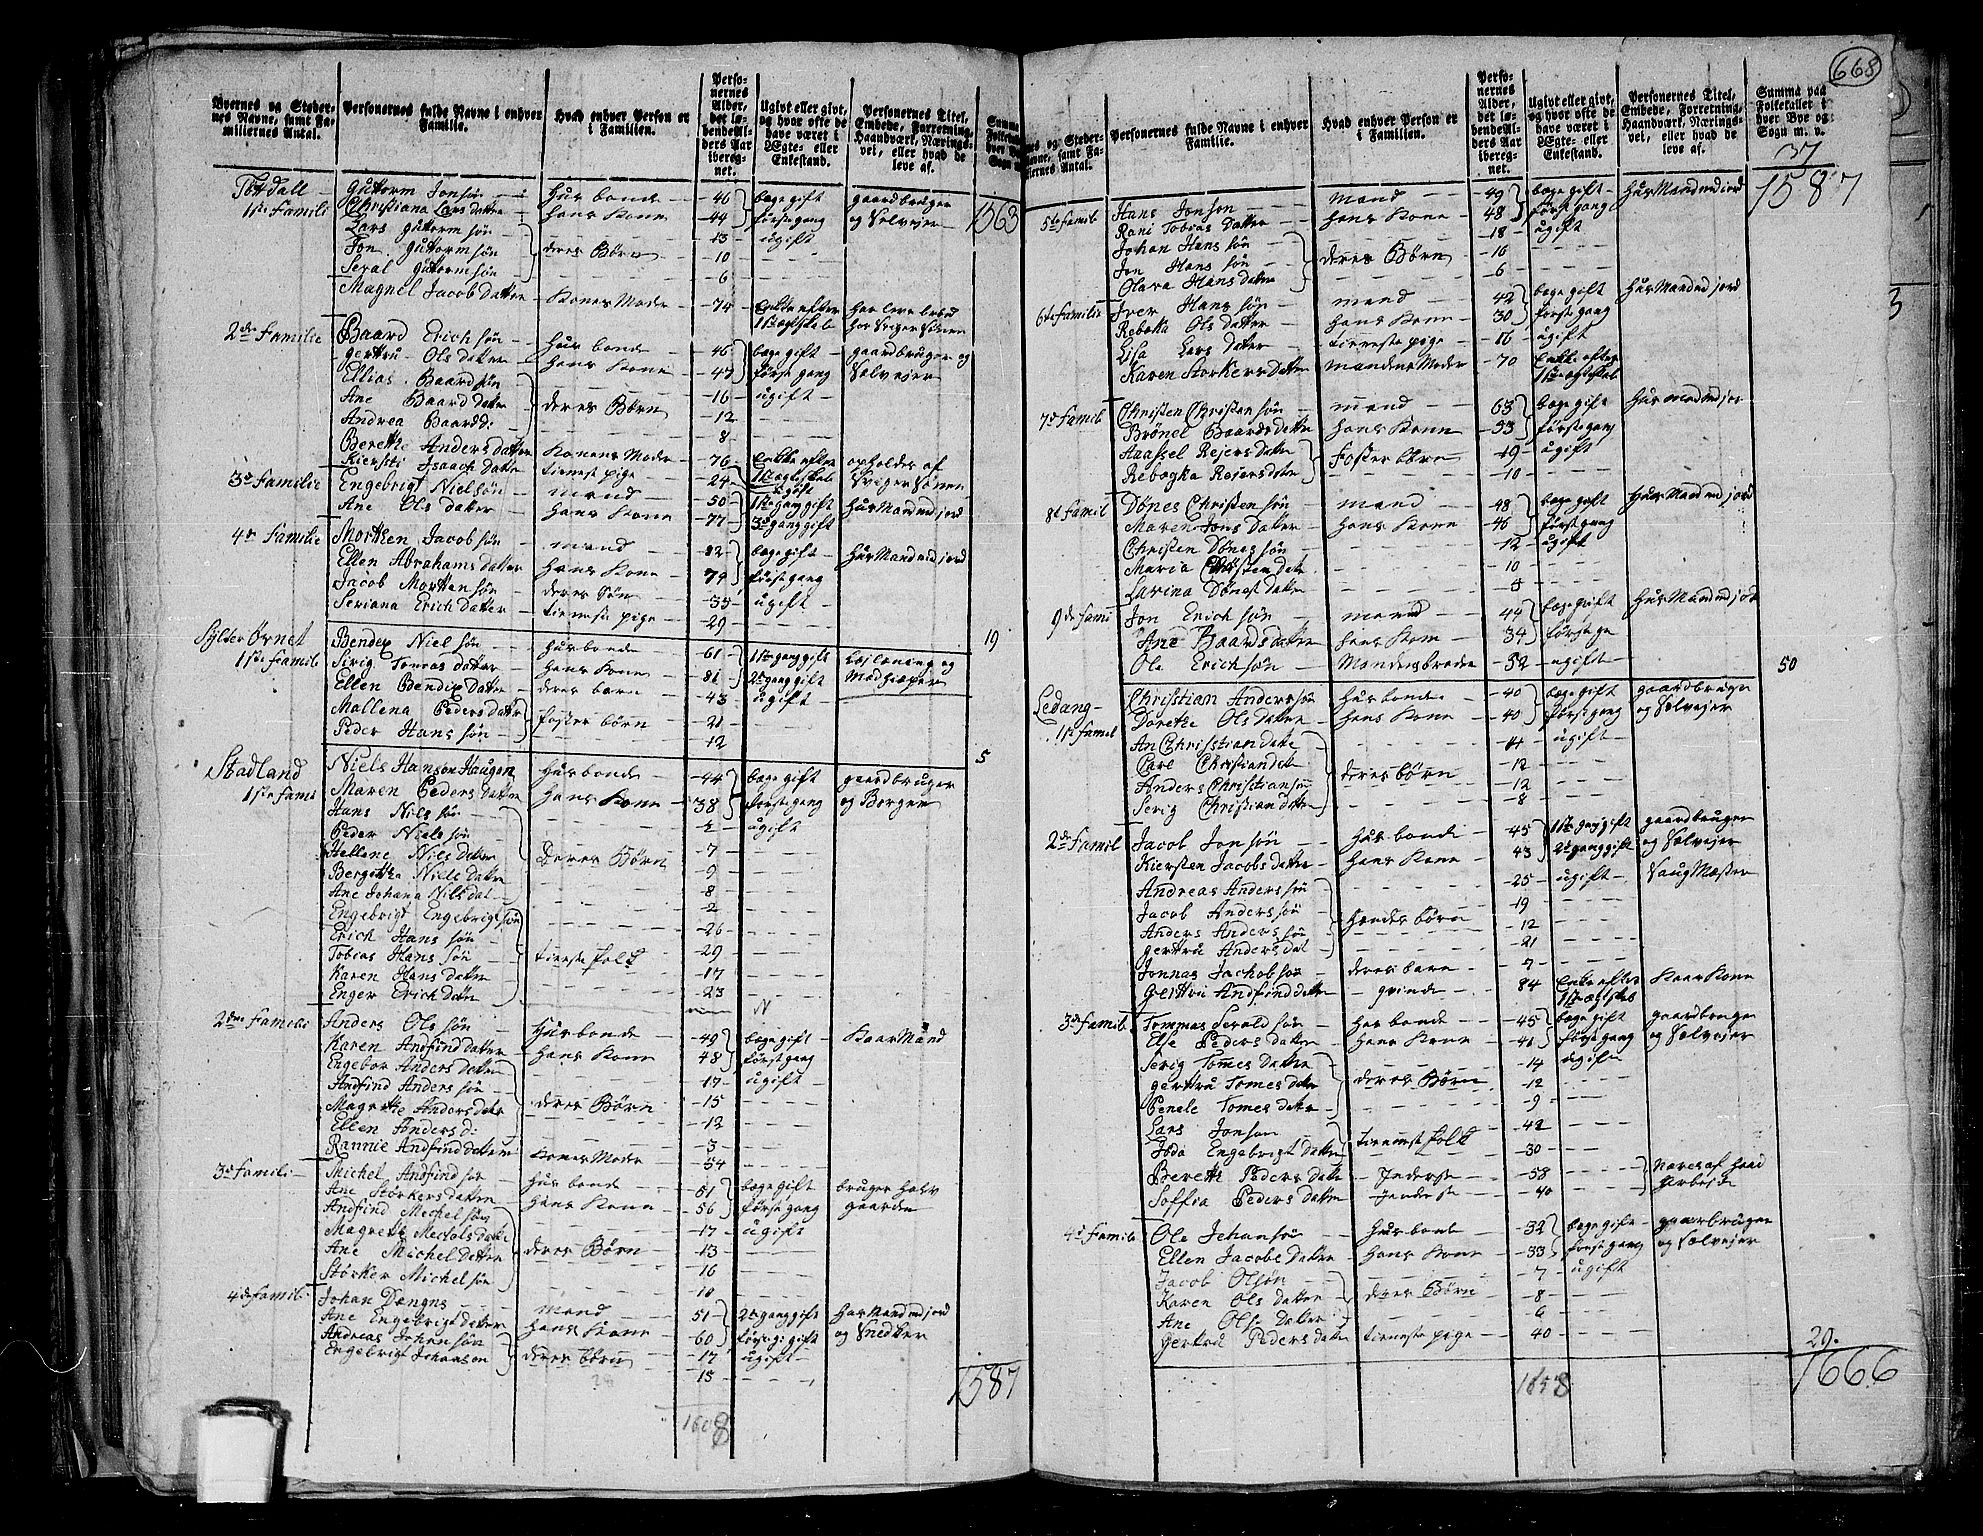 668
Byernes og Stedernes Navne, samt Familiernes Antal.
Personernes fulde Navne i enhver Familie.
Hvad enhver Person er i Familien.
Personernes Alder, det løbende Alders Aar iberegnet.
Ugivt eller givt, og hvor ofte de have været i Ægte- eller Enkestand.
Personernes Titel, Embede, Forretning, Haandværk, Næringsvei, eller hvad de leve af.
1563
1ste Famili Guttorm Jonsøn Husbonde 46 bægegift gaardbruger
Christiana Lars Datter hans Kone 44 første gang og Selvejer
Lars Guttormsøn 13 ugift
Jon Guttormsøn deres Børn 10
Guttormsøn 6
Magnel Jacob Datter Kones Mode 74 Enke efter
2de Familie Baard Erichsøn Husbonde 46 bægegift gaardbruger og
Gertru Ols datter hans Kone 47 første gang Sælvejer
Ellias Baardsøn 16 ugift
Ane Baard datter deres Børn 12
Andrea Baardd: 8
Berethe Anders datter Konens Mode 76 Enke efter opholdes af
Kiersti Isaach Datter tieneste pige 24
3de Familie Engebrigt Nielsøn mand 50 1ste gang gift Husmand med jord
Ane Ols datter hans Kone 77 3de gang gift
4de Familie Morthen Jacobsøn mand 82 bægegift Husmand med jord
Ellen Abrahams datter hans Kone 74 første gang
Jacob Morttensøn deres Søn 35 ugift
Seriana Erich Datter tieneste pige 29
19
Sylte Ørnet Bendex Nielsøn Husbonde 61 1ste gang gift
1ste Famili Sirig Tomas datter hans Kone 81 2de gang gift
Ellen Bendix Datter deres barn 43 ugift
Mallena Peders datter foster børn 21
Peder Hans søn 12
5
Stadland Niels Hanson Haugen Husbonde 44 bægegift gaardbruger
1ste Fami Maren Peders datter hans Kone 38 første gang og Borger
Hans Nielssøn 2 ugift
Peder Nielssøn 7
Hellene Niels datter Deres Børn 9
Bergitha Niels Datter 8
Ane Johana Nilsdat 2
Engebrigt Engebrigtsøn 26
Erich Hans søn 29
Tobias Hans søn tieneste folk 17
Karen Hans datter 23
Enger Erich Datter
2den Famili Anders Ols søn Husbonde 49 bægegift Kaar Mand
Karen Andfind datter hans Kone 48 første gang
Engebor Anders datter 17 ugift
Andfind Anders søn 15
Magrethe Anders datter deres Børn 12
Ellen Anders d: 3
Rannie Andfind datter Kones Mode 54
3de famili Michel Andfindsøn Husbonde 51 bægegift bruger halv
Ane Størkers datter hans Kone 56 første gang gaarden
Andfind Michelsøn 17 ugift
Magrethe datter 13
Ane Michel datter deres Børn 16
Størker Michelsøn 10
4de famili Johan mand 51 2de gang gift Husmand med jord
Ane Engebrigt datter hans Kone 60 og Snedker
Andreas Johansøn 17 ugift
Engebrigt Johansen deres Børn 15
28
1608
1587
Byernes og Stedernes Navne, samt Familiernes Antal.
Personernes fulde Navne i enhver Familie.
Hvad enhver Person er i Familien.
Personernes Alder, det løbende Alders Aar iberegnet.
Ugivt eller givt, og hvor ofte de have været i Ægte- eller Enkestand.
Personernes Titel, Embede, Forretning, Haandværk, Næringsvei, eller hvad de leve af.
Summa paa Folketallet i hver Bye og Sogn m. v.
37
1587
5te Famili Hans Jonson mand 49 bægegift Husmand med jord
Rani Tobias Datter hans Kone 48 første gang
Johan Hans søn 18 ugift
Jon Hans søn deres Børn 16
Olava Hans datter 6
6te Familie Iver Hans søn mand 42 bægegift Husmand med jord
Rebeka Ols datter hans Kone 30 første gang
Lisa Lars Datter tieneste pige 16 ugift
Karen Storkers Datter mandens Moder 70
7de Famili Christen Christensøn mand 63 bægegift Husmand med jord
Brønel Baards datter hans Kone 53 første gang
Rejers datter Foster børn 19 ugift
Rebegka Rejers datter 10
8de Famil Dønes Christensøn mand 48 bægegift Husmand med jord
Maren Jons Datter hans Kone 46 første gang
Christen Dønes søn 12 ugift
Maria 10
Larina Dønes datter 8
9de Fami Jon Erich søn mand 44 bægegift Husmand med jord
Ane Baards datter hans Kone 34 første ga
Ole Erich søn Mandens brode 52 ugift
50
Ledang Christian Anderssøn Husbonde 40 bægegift gaardbruger
1ste Famil Dorethe Ols datter hans Kone 40 første gang og Sælvejer
An Christian datter 4 ugift
Carl Christian 12
Anders Christiansøn deres børn 12
Serig Christian datter 8
2de Famil Jacob Jonsøn Husbonde 45 1ste gang gift gaardbruger
Kiersten Jacobs datter hans Kone 43 2de gang gift og Sælvejer
Andreas Anders søn 25 ugift
Jacob Anders søn 19
Anders Anders søn hendes børn 12
Gertru Anders dat 21
Jonnas Jachobsøn deres barn 7
Gerttru Andfind datter qvinde 84 Enke efter Kaar Kone
3de Famil Tommas søn Husbonde 45 bægegift gaardbruger
Else Peders datter hans Kone 41 første gang og Sælvejer
Serig Tomes datter 14 ugift
Gertru Tomes datter deres Børn 12
Penele Tomes datter 9
Lars Jonson 42
Engebrigt datter tieneste folk 30
Berette Peders datter Inderste 58
Soffia Peders Datter Inderste 40
4de Famili Ole Johansøn Husbonde 32 bægegift gaardbruger
Ellen Jacobs datter hans Kone 33 første gang og Sælvejer
Jacob Olsøn 7 ugift
Karen Ols Datter deres Børn 8
Ane Ols Datter 6
Gertru Peders datter tieneste pige 40
29.
1658
1666